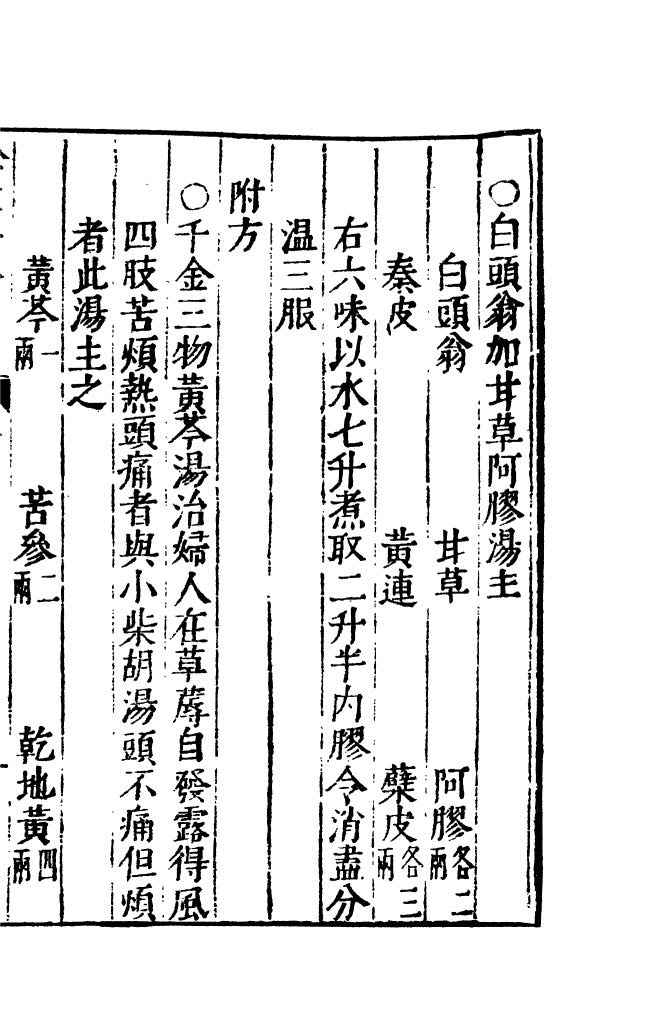 ○白頭翁加甘草阿膠湯主
白頭翁　甘草　阿膠各二兩
秦皮　黃連　蘗皮各三兩
右六味以水七升煮取二升半內膠令消盡分
温三服
附方
○千金三物黃芩湯治婦人在草蓐自發露得風
四肢苦煩熱頭痛者與小柴胡湯頭不痛但煩
者此湯主之
黃芩一兩　苦參二兩　乾地黃四兩